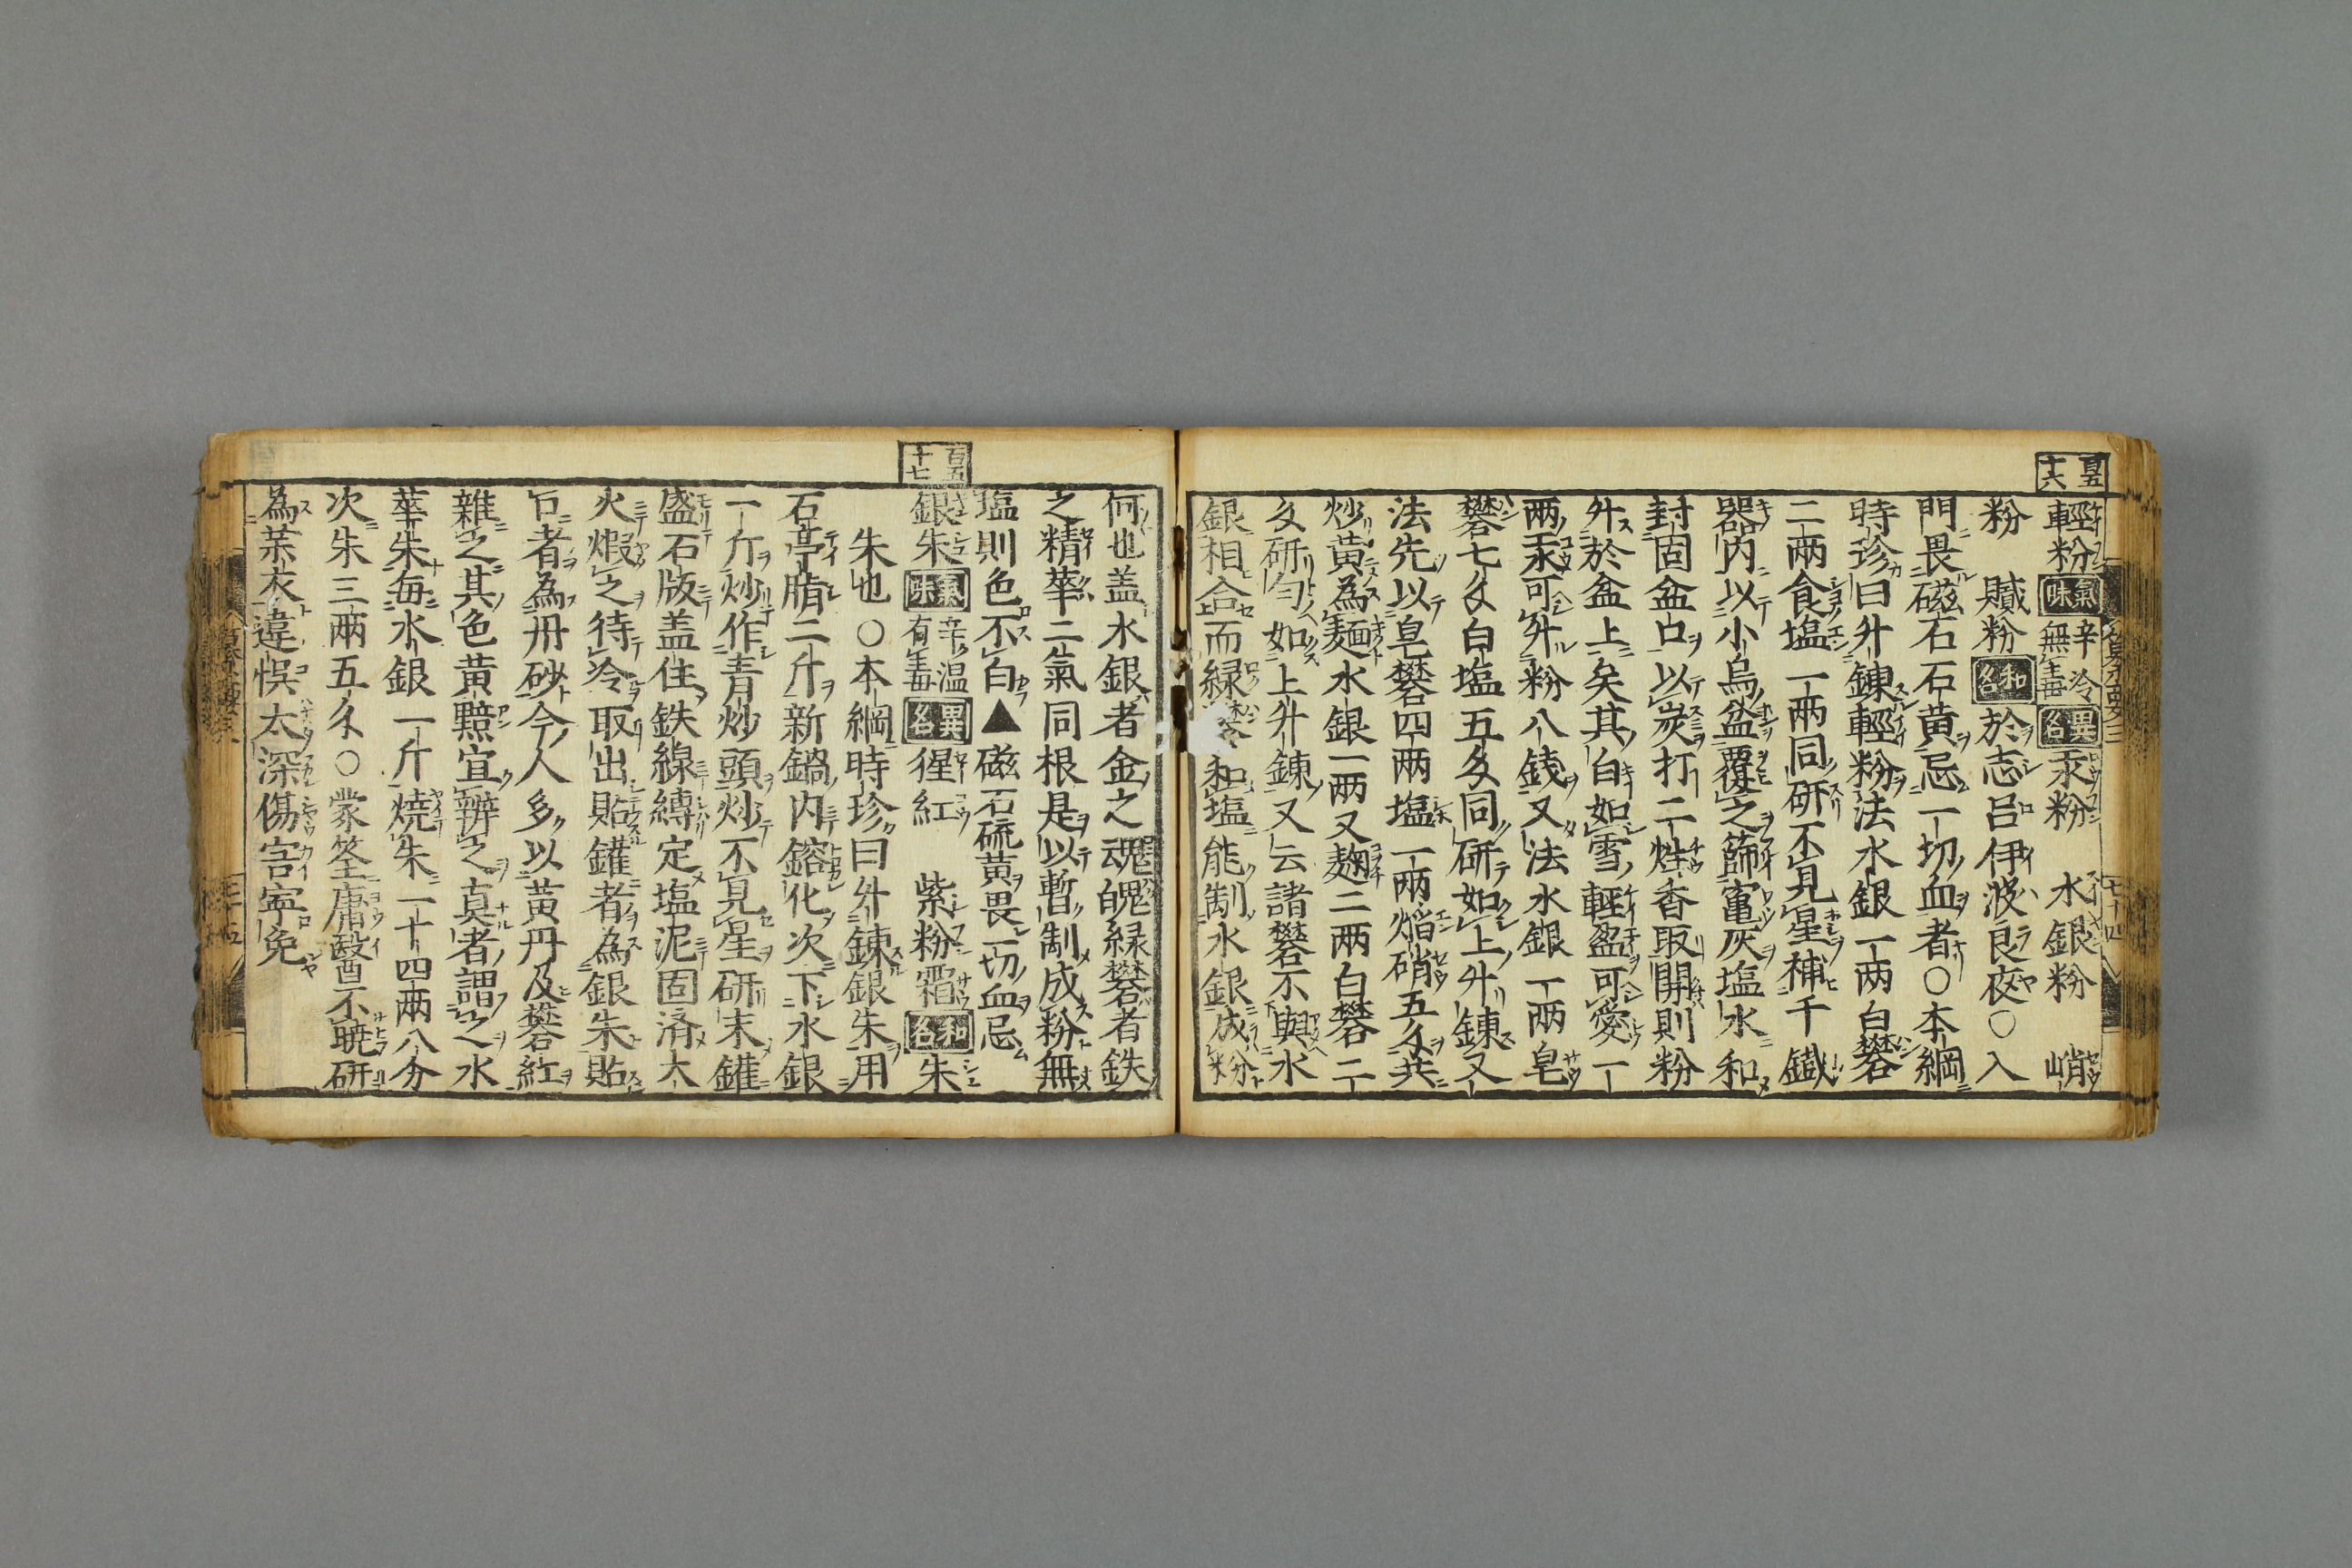 百五十六
輕粉 氣味 辛冷無毒 異名 汞粉 水銀粉 峭
粉 膩粉 和名 於志呂伊波良夜○入
門畏磁石石黄忌一切血者○本綱
時珍曰升錬輕粉法水銀一两白礬
二兩食塩一兩同研不見星補千鐵
器内以小烏盆覆之篩竃灰塩水和
封固盆口以炭打二炷香取開則粉
升於盆上矣其白如雪輕盈可愛一
兩汞可升粉八錢又法水銀一兩皂
礬七戔白塩五戔同研如上升錬又
法先以皂礬四两塩一兩焔硝五戔共
炒黄為麺水銀一两又麹二两白礬二
戔研勻如上升錬又云諸礬不與水
銀相合而緑礬和塩能制水銀成粉
何也盖水銀者金之魂魄緑礬者鉄
之精華二氣同根是以暫制成粉無
塩則色不白▲磁石硫黄畏一切血忌
百五十七
銀朱 氣味 辛温有毒 異名 猩紅 紫粉霜 和名 朱
朱也○本綱時珍曰升錬銀朱用
石亭脂二斤新鍋内鎔化次下水銀
一斤炒作青炒頭炒不見星研末罐
盛石版盖住鉄線縛定塩泥固済大
火煆之待冷取出貼罐者為銀朱貼
口者為丹砂今人多以黄丹及礬紅
雜之其色黄黯宜辨之真者謂之水
華朱毎水銀一斤燒朱一十四兩八分
次朱三兩五戔○蒙筌庸醫不曉研
為茶衣違悞太深傷害寧免